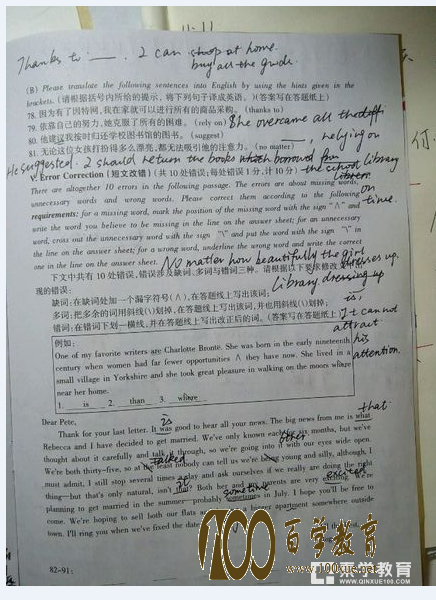 Thanks to —. I can shop at home.
buy all the goods.
(B) Please translate the following sentences into English by using the hints given in the
brackets. (请根据括号内所给的提示, 将下列句子译成英语。)(答案写在答题纸上)
78. 因为有了因特网, 我在家就可以进行所有的商品采购。(thanks to)
79. 依靠自己的努力, 她克服了所有的困难。(rely on) She overcame all the
80. 他建议我按时归还学校图书馆的图书。(suggest) —, relying on
81. 无论这位女孩打扮得多么漂亮, 都无法吸引他的注意力。(no matter)
He suggested I should return the books borrowed from library
V. Error Correction (短文改错) (共 10 处错误; 每处错误 1 分, 计 10 分)
on
There are altogether 10 errors in the following passage. The errors are about missing words,
time.
unnecessary words and wrong words. Please correct them according to the following
requirements: for a missing word, mark the position of the missing word with the sign "∧" and
write the word you believe to be missing in the line on the answer sheet; for an unnecessary
word, cross out the unnecessary word with the sign "\" and put the word with the sign "\" in
the line on the answer sheet; for a wrong word, underline the wrong word and write the correct
one in the line on the answer sheet.
No matter how beautifully the girl
dresses up.
下文中共有 10 处错误, 错误涉及缺词、多词与错词三种。请根据以下要求修改文中出
现的错误:
缺词: 在缺词处加一个漏字符 (∧), 在答题线上写出该词,
is,
多词: 把多余的词用斜线(\)划掉, 在答题线上写出该词, 并也用斜线(\)划掉;
错词: 在错词下划一横线, 并在答题线上写出改正后的词。(答案写在答题纸上)
It cannot
attract
his
attention.
例如:
One of my favorite writers are Charlotte Brontë. She was born in the early nineteenth
century when women had far fewer opportunities ∧ they have now. She lived in a
small village in Yorkshire and she took great pleasure in walking on the moors where
near her home.
1. is 2. than 3. where
Dear Pete,
is
that
Thank for your last letter. It was good to hear all your news. The big news from me is what
Rebecca and I have decided to get married. We've only known each six months, but we've
other
thought about it carefully and talk it through, so we're going into it with our eyes wide open.
talked
We're both thirty-five, so at the least nobody can tell us we're being young and silly, although, I
must admit, I still stop several times a day and ask ourselves if we really are doing the right
thing—but that's only natural, isn't that? Both her and my parents are very exciting. We're
it
excited
planning to get married in the summer—probably sometimes in July. I hope you'll be
sometime
come. We're hoping to sell both our flats and a bigger apartment somewhere outside
town. I'll ring you when we've fixed the date
82-91:
100百学教育
www.100xue.net
教育
WWW.QINXUE100.COM